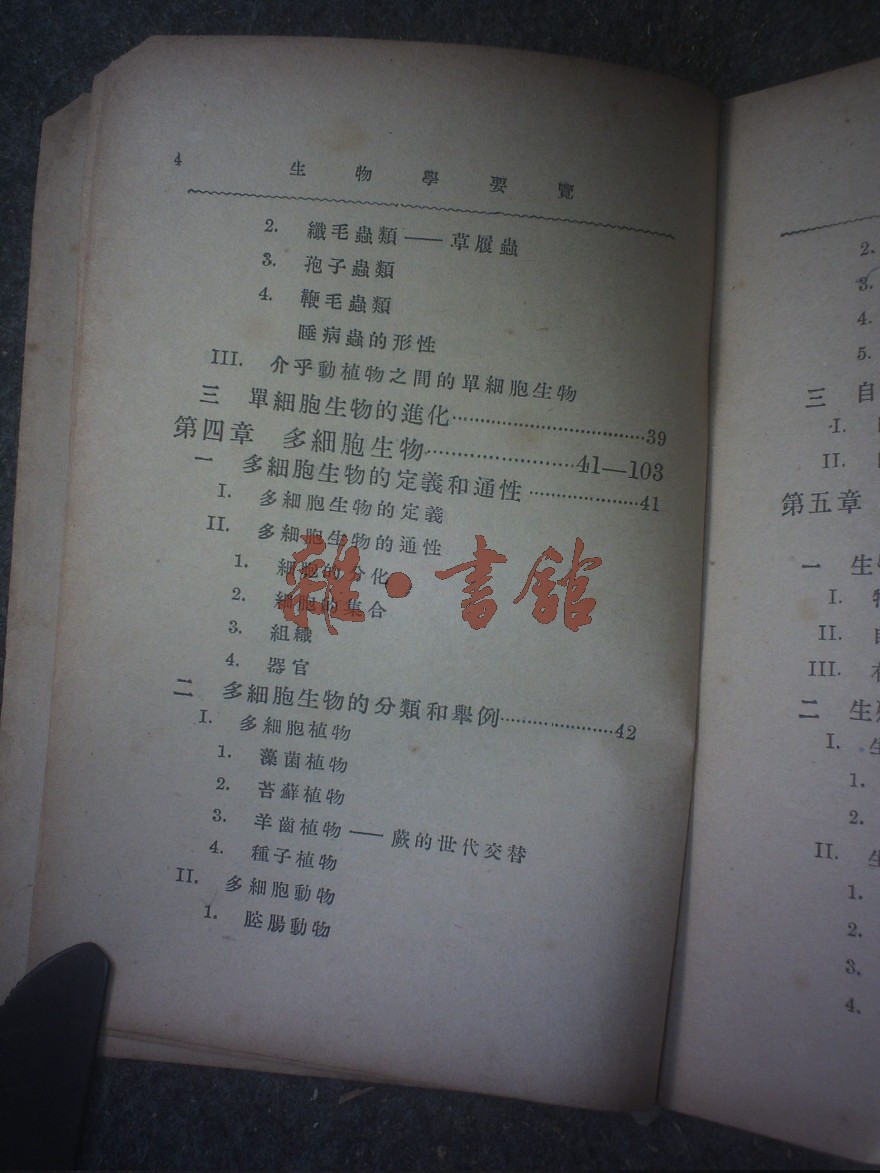 4 生物學要覽
2. 纖毛蟲類——草履蟲
3. 孢子蟲類
4. 鞭毛蟲類
睡病蟲的形性
III. 介乎動植物之間的單細胞生物
三 單細胞生物的進化……39
第四章 多細胞生物……41—103
一 多細胞生物的定義和通性……41
I. 多細胞生物的定義
II. 多細胞生物的通性
1. 細胞的分化
2. 細胞的集合
3. 組織
4. 器官
二 多細胞生物的分類和舉例……42
I. 多細胞植物
1. 藻菌植物
2. 苔蘚植物
3. 羊齒植物——蕨的世代交替
4. 種子植物
II. 多細胞動物
1. 腔腸動物
雜·書館
2.
3.
4.
5.
三 自
I.
II.
第五章
一 生
I.
II.
III.
二 生
I. 生
1.
2.
II. 生
1.
2.
3.
4.